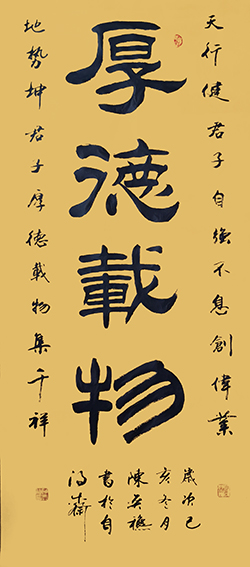 天行健君子自強不息創偉業
厚德載物
地勢坤君子厚德載物集千祥
歲次己
亥冬月
陳
書於自